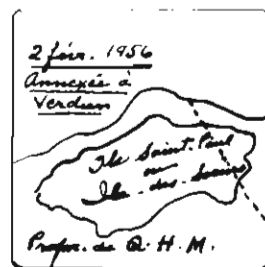 2 fév. 1956
Annexée à
Verdun
Ile Saint-Paul
ou
Ile-des-Soeurs
Propr. de Q.H.M.